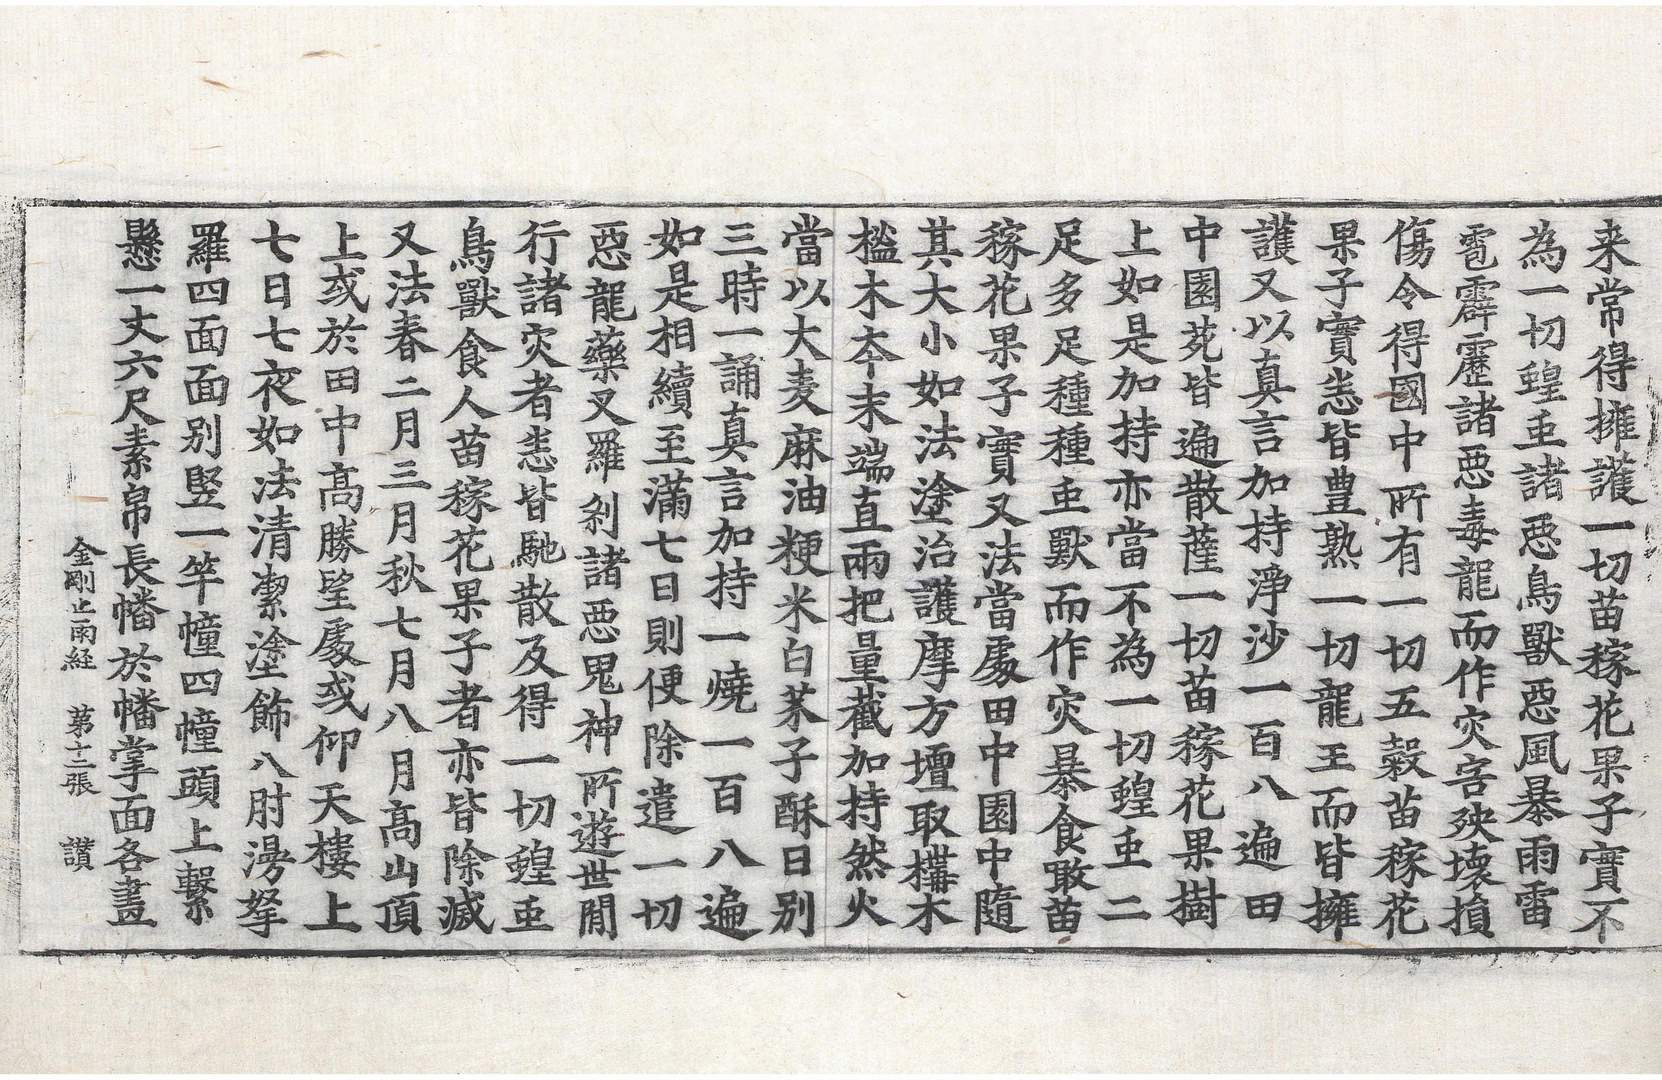 来常得擁護一切苗稼花果子實不
為一切蝗䖝諸惡鳥獸惡風暴雨雷
雹霹靂諸惡毒龍而作灾害殃壞損
傷令得國中所有一切五穀苗稼花
果子實悉皆豊熟一切龍王而皆擁
護又以真言加持淨沙一百八遍田
中園苑皆遍散薩一切苗稼花果樹
上如是加持亦當不為一切蝗䖝二
足多足種種䖝獸而作灾暴食噉苗
稼花果子實又法當處田中園中隨
其大小如法塗治護摩方壇取構木
榓木夲末端直兩把量截加持然火
當以大麦麻油粳米白芥子酥日別
三時一誦真言加持一燒一百八遍
如是相續至滿七日則便除遣一切
惡龍藥叉羅剎諸惡鬼神所遊世閒
行諸灾者悉皆馳散及得一切蝗䖝
鳥獸食人苗稼花果子者亦皆除滅
又法春二月三月秋七月八月髙山頂
上或於田中髙勝望處或仰天樓上
七日七夜如法清潔塗飾八肘澷拏
羅四面面別竪一竿幢四幢頭上繫
懸一丈六尺素帛長幡於幡掌面各畫
金剛止雨経　第十二張　讃